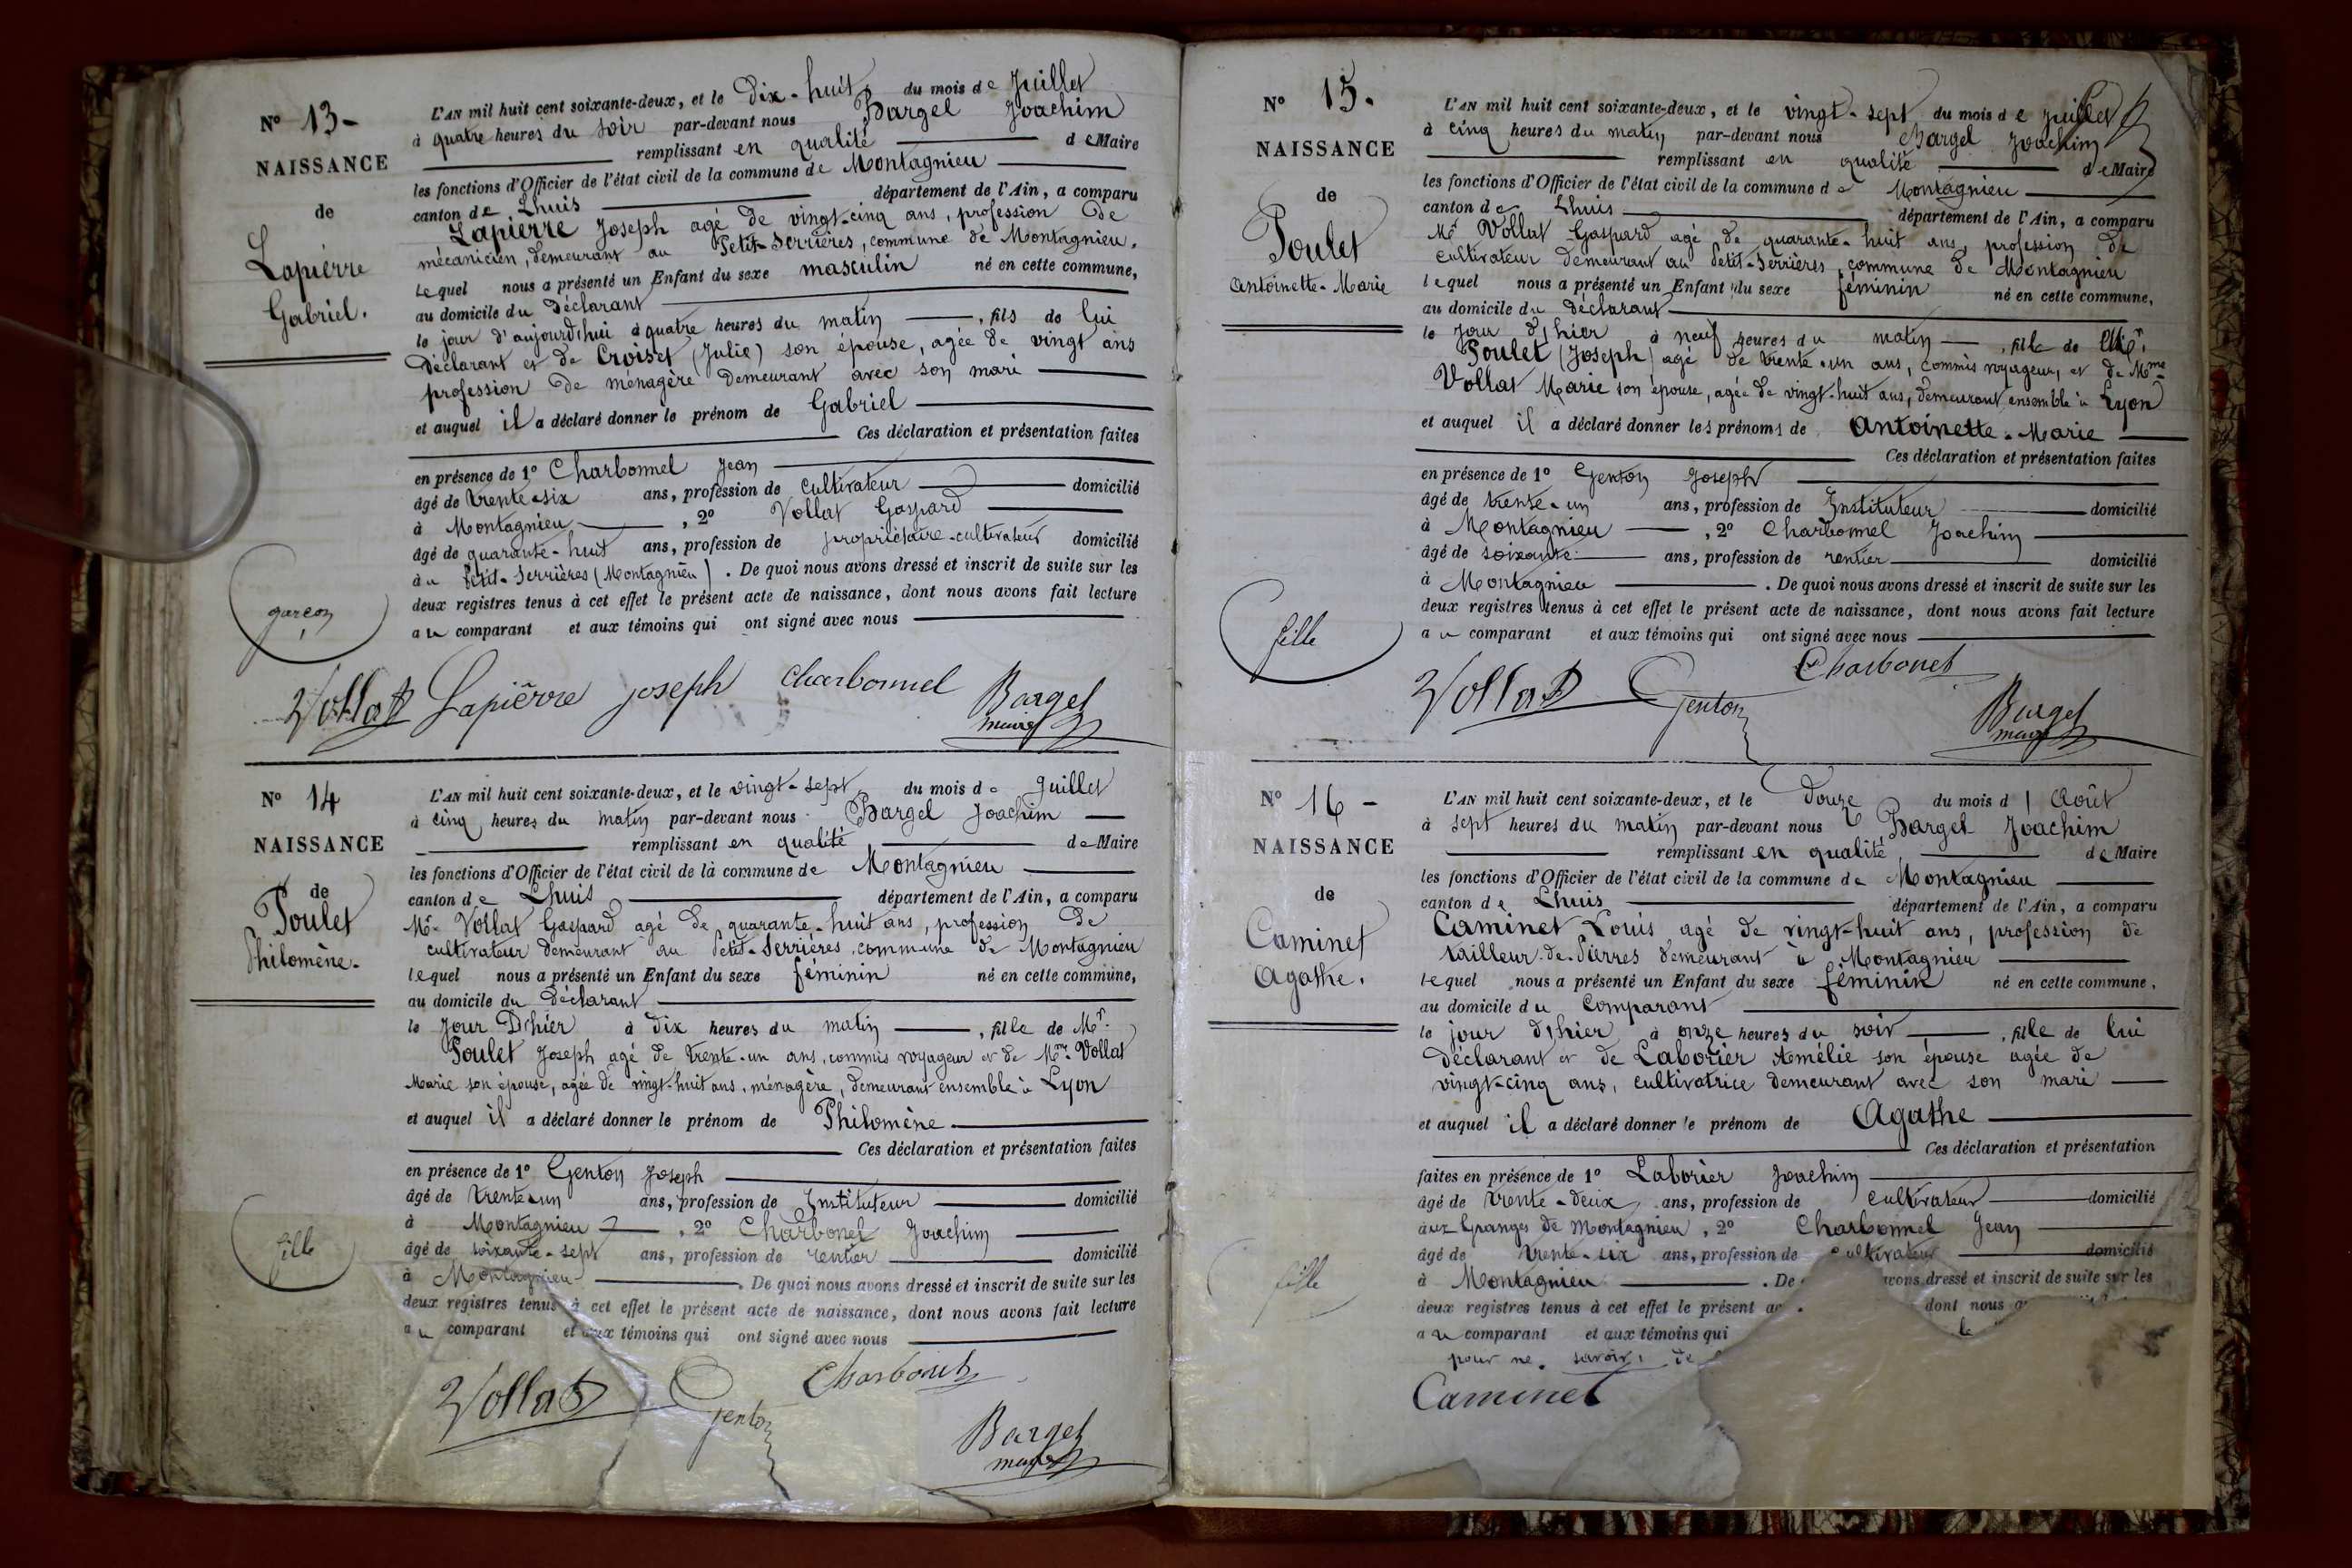 N° 13-
NAISSANCE
de
Lapierre
Gabriel.
garçon
L'AN mil huit cent soixante-deux, et le Dix-huit du mois de Juillet
à quatre heures du soir par-devant nous Bargel Joachim
remplissant en qualité de Maire
les fonctions d'Officier de l'état civil de la commune de Montagnieu
canton de Lhuis département de l'Ain, a comparu
Lapierre Joseph agé de vingt-cinq ans, profession de
mécanicien, demeurant au Petit-Serrières, commune de Montagnieu.
lequel nous a présenté un Enfant du sexe masculin né en cette commune,
au domicile du Déclarant
le jour d'aujourd'hui à quatre heures du matin, fils de lui
Déclarant et de Croiset (Julie) son épouse, agée de vingt ans
profession de ménagère Demeurant avec son mari
et auquel il a déclaré donner le prénom de Gabriel
Ces déclaration et présentation faites
en présence de 1° Charbonnel Jean
âgé de trente-six ans, profession de cultivateur domicilié
à Montagnieu, 2° Vollat Gaspard
âgé de quarante-huit ans, profession de propriétaire-cultivateur domicilié
au Petit-Serrières (Montagnieu). De quoi nous avons dressé et inscrit de suite sur les
deux registres tenus à cet effet le présent acte de naissance, dont nous avons fait lecture
au comparant et aux témoins qui ont signé avec nous
Vollat Lapierre joseph Charbonnel Bargel
maire
N° 14
NAISSANCE
de
Poulet
Philomène.
fille
L'AN mil huit cent soixante-deux, et le vingt-sept du mois de Juillet
à cinq heures du matin par-devant nous Bargel Joachim
remplissant en qualité de Maire
les fonctions d'Officier de l'état civil de la commune de Montagnieu
canton de Lhuis département de l'Ain, a comparu
Mr Vollat Gaspard agé de quarante-huit ans, profession de
cultivateur demeurant au Petit-Serrières commune de Montagnieu
lequel nous a présenté un Enfant du sexe féminin né en cette commune,
au domicile du Déclarant
le Jour D'hier à dix heures du matin, fille de Mr.
Poulet Joseph agé de trente-un ans, commis voyageur et de Mme Vollat
Marie son épouse, agée de vingt-huit ans, ménagère, demeurant ensemble à Lyon
et auquel il a déclaré donner le prénom de Philomène
Ces déclaration et présentation faites
en présence de 1° Genton Joseph
âgé de trente-un ans, profession de Instituteur domicilié
à Montagnieu, 2° Charbonet Joachim
âgé de soixante-sept ans, profession de rentier domicilié
à Montagnieu. De quoi nous avons dressé et inscrit de suite sur les
deux registres tenus à cet effet le présent acte de naissance, dont nous avons fait lecture
au comparant et aux témoins qui ont signé avec nous
Vollat Genton Charbonet
Bargel
maire
N° 15.
NAISSANCE
de
Poulet
Antoinette-Marie
fille
L'AN mil huit cent soixante-deux, et le vingt-sept du mois de Juillet
à cinq heures du matin par-devant nous Bargel Joachim
remplissant en qualité de Maire
les fonctions d'Officier de l'état civil de la commune de Montagnieu
canton de Lhuis département de l'Ain, a comparu
Mr Vollat Gaspard agé de quarante-huit ans, profession de
cultivateur demeurant au Petit-Serrières, commune de Montagnieu
lequel nous a présenté un Enfant du sexe féminin né en cette commune,
au domicile du Déclarant
le Jour d'hier à neuf heures du matin, fille de Mr.
Poulet (Joseph) agé de trente-un ans, commis voyageur, et de Mme
Vollat Marie son épouse, agée de vingt-huit ans, demeurant ensemble à Lyon
et auquel il a déclaré donner les prénoms de Antoinette-Marie
Ces déclaration et présentation faites
en présence de 1° Genton Joseph
âgé de trente-un ans, profession de Instituteur domicilié
à Montagnieu, 2° Charbonnel Joachim
âgé de soixante ans, profession de rentier domicilié
à Montagnieu. De quoi nous avons dressé et inscrit de suite sur les
deux registres tenus à cet effet le présent acte de naissance, dont nous avons fait lecture
au comparant et aux témoins qui ont signé avec nous
Vollat Genton Charbonet
Bargel
maire
N° 16-
NAISSANCE
de
Caminet
Agathe.
fille
L'AN mil huit cent soixante-deux, et le Douze du mois d'Août
à sept heures du matin par-devant nous Bargel Joachim
remplissant en qualité de Maire
les fonctions d'Officier de l'état civil de la commune de Montagnieu
canton de Lhuis département de l'Ain, a comparu
Caminet Louis agé de vingt-huit ans, profession de
tailleur-de-Pierres demeurant à Montagnieu
lequel nous a présenté un Enfant du sexe féminin né en cette commune.
au domicile du Comparant
le jour d'hier à onze heures du soir, fille de lui
déclarant et de Laborier Amélie son épouse agée de
vingt-cinq ans, cultivatrice demeurant avec son mari
et auquel il a déclaré donner le prénom de Agathe
Ces déclaration et présentation
faites en présence de 1° Laborier Joachim
âgé de trente-deux ans, profession de cultivateur domicilié
aux Granges de Montagnieu, 2° Charbonnel Jean
âgé de trente-six ans, profession de cultivateur domicilié
à Montagnieu. De avons dressé et inscrit de suite sur les
deux registres tenus à cet effet le présent dont nous
au comparant et aux témoins qui
pour ne savoir, de
Caminet